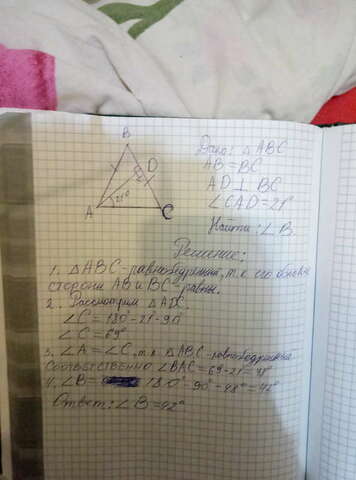 B
D
A
21°
C
Дано: △ABC
AB = BC
AD ⊥ BC
∠CAD = 21°
Найти: ∠B.
Решение:
1. △ABC - равнобедренный, т.к его боковые
стороны AB и BC - равны.
2. Рассмотрим △ADC.
∠C = 180° - 21 - 90°
∠C = 69°
3. ∠A = ∠C, т.к △ABC - равнобедренный
соответственно ∠BAC = 69 - 21 = 48°
4. ∠B = 180° - 90° - 48° = 42°
Ответ: ∠B = 42°